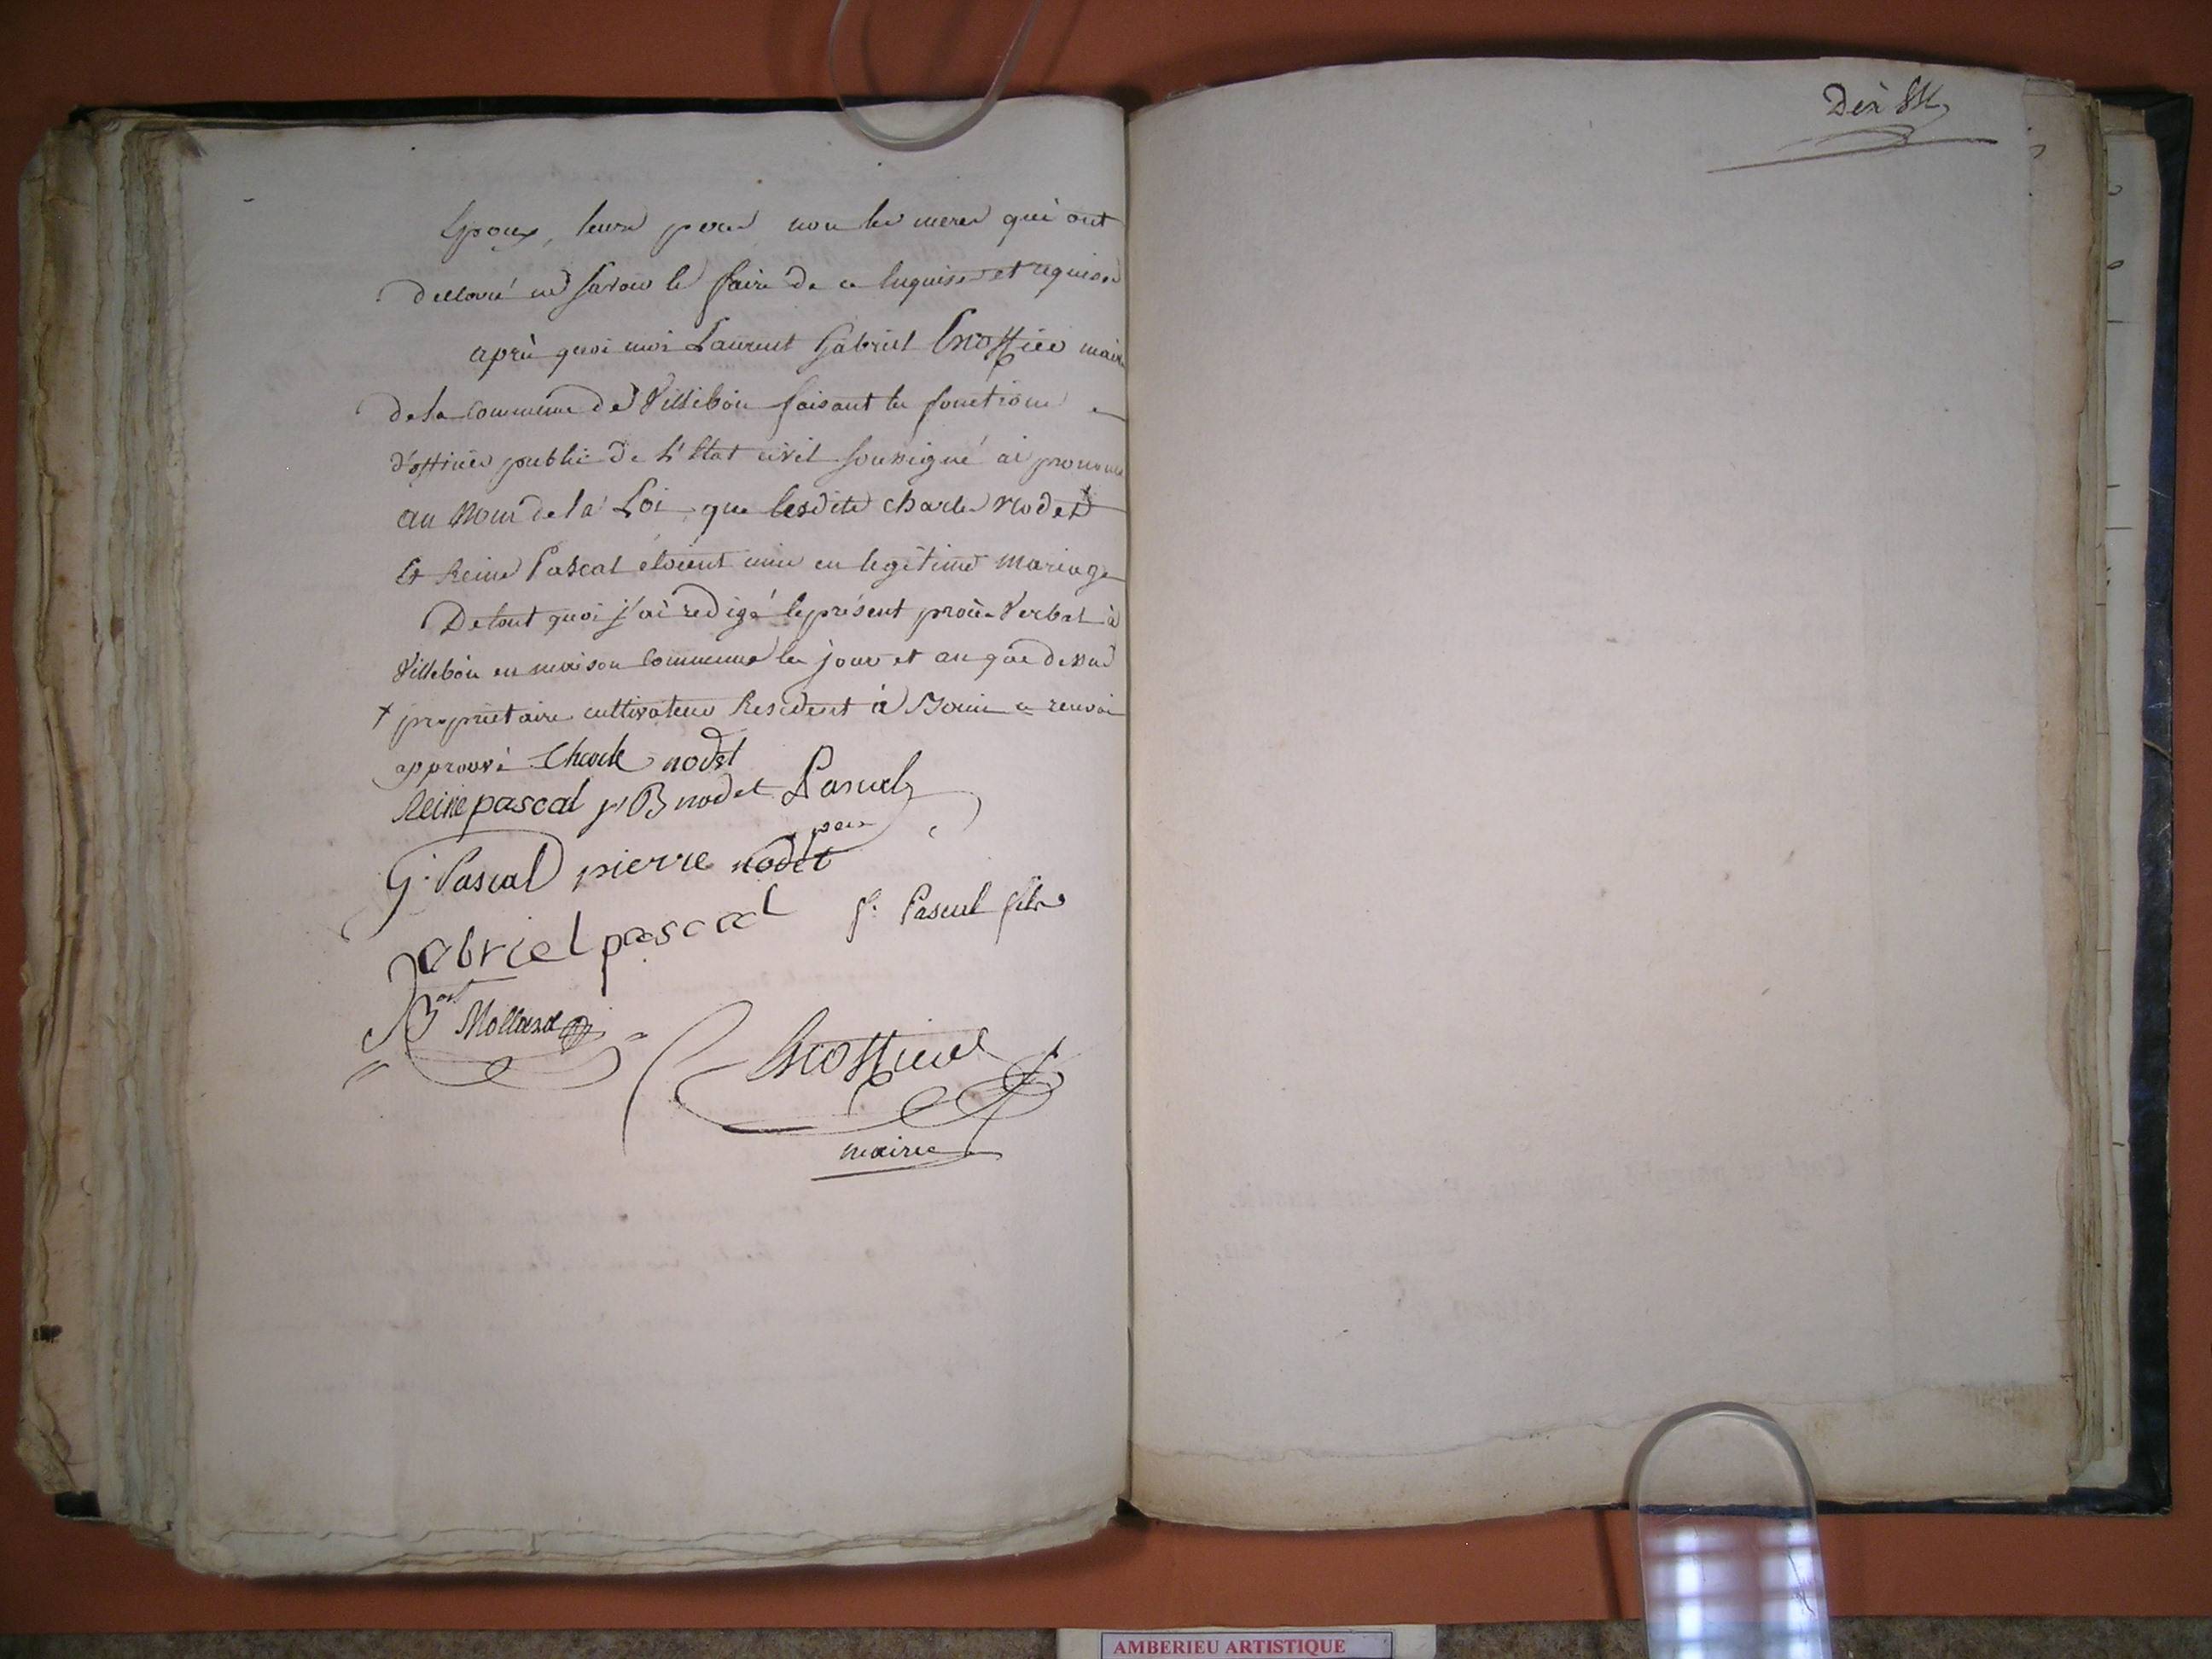 Epoux, leurs peres non les meres qui ont
declaré ne savoir le faire de ce enquises et requises
après quoi moi Laurent Gabriel Trossieu maire
de la Commune de Villebois faisant les fonctions
d'officier public de L'Etat civil soussigné ai prononcé
au Nom de la Loi, que lesdits charles Nodet +
Et Reine Pascal étoient unis en legitime mariage
De tout quoi j'ai redigé le présent procès Verbal à
Villebois en maison Commune les jour et an que dessus
+ propriétaire cultivateur Resident à ce renvoi
approuvé Charle nodet
Reine pascal nodet Pascal
G. Pascal pierre nodet pere
gabriel pascal
f. Pascal fils
Mollard
Trossieu
maire
AMBERIEU ARTISTIQUE